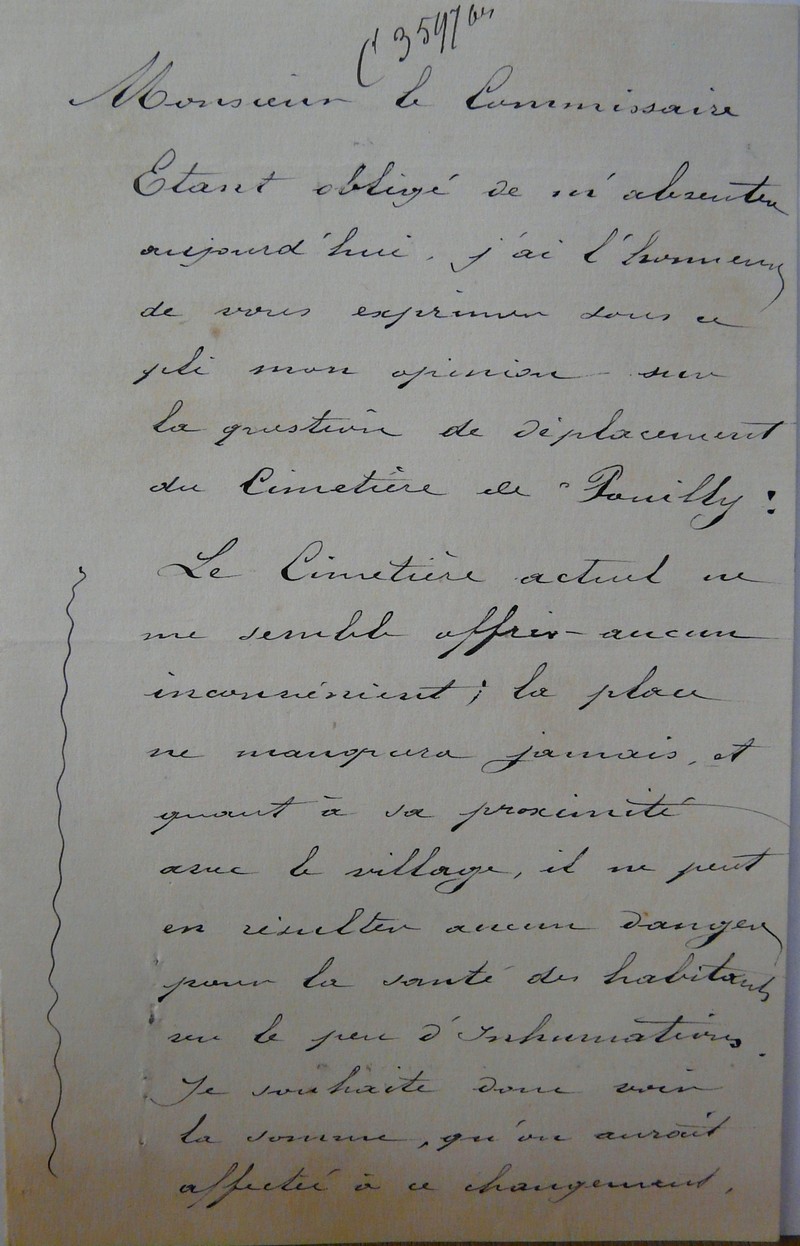 3597 bis
Monsieur le Commissaire
Etant obligé de m'absenter
aujourd'hui, j'ai l'honneur
de vous exprimer sous ce
pli mon opinion sur
la question de déplacement
du Cimetière de Pouilly :
Le Cimetière actuel ne
me semble offrir aucun
inconvénient ; la place
ne manquera jamais, et
quant à sa proximité
avec le village, il ne peut
en résulter aucun danger
pour la santé des habitants
vu le peu d'Inhumations.
Je souhaite donc voir
la somme, qu'on aurait
affectée à ce changement,